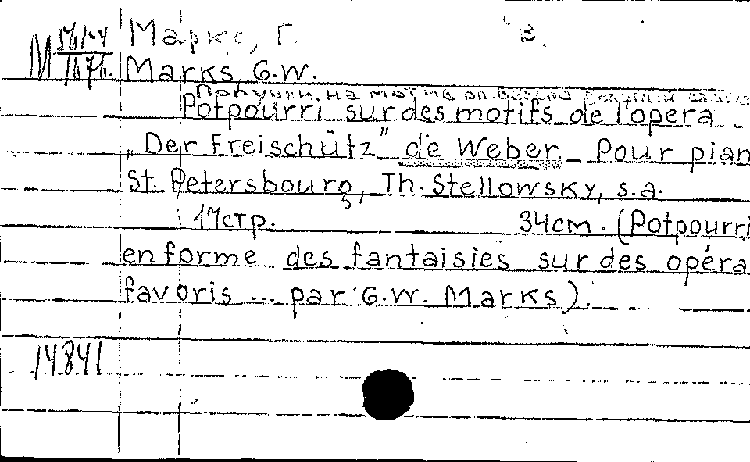 Маркс, Г. В.
M
Marks G.W.
на
Potpourri sur des motifs de l'opera
„Der Freischütz" de Weber. Pour pian
St. Petersbourg, Th. Stellowsky, s.a.
17стр. 34cm. (Potpourri
en forme des fantaisies sur des opéra
favoris ... par G.W. Marks).
14841